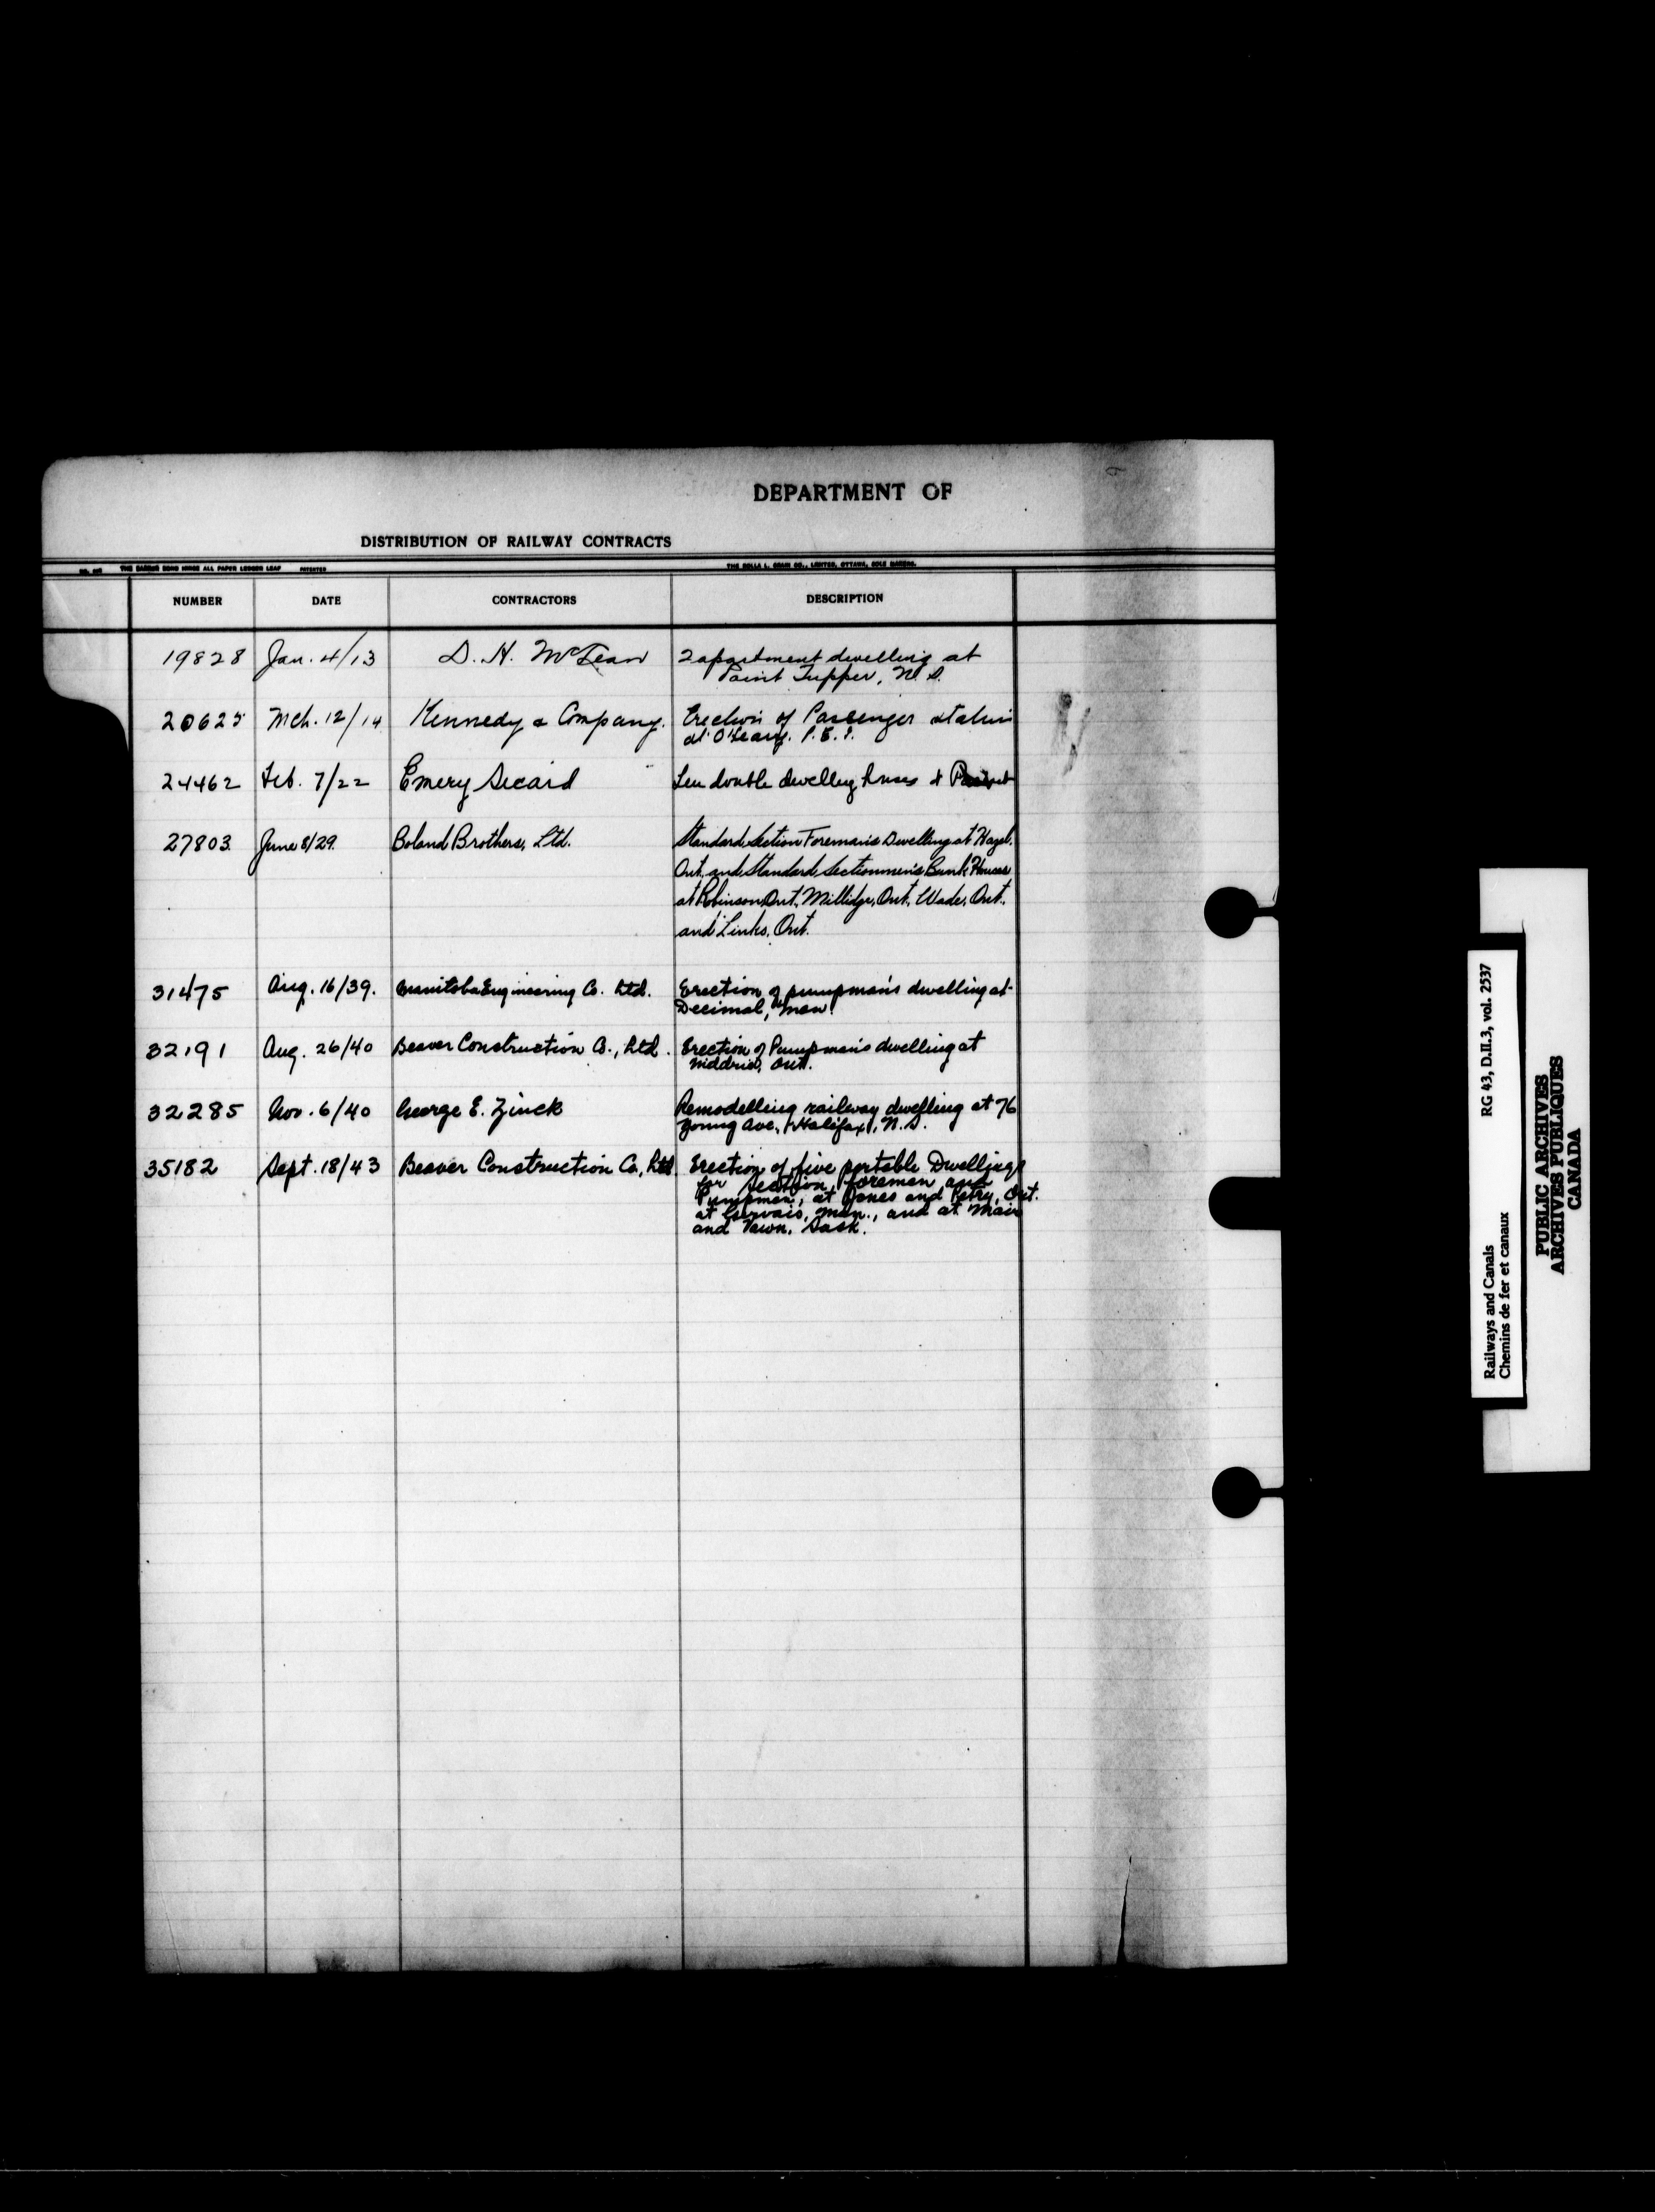 DEPARTMENT OF
DISTRIBUTION OF RAILWAY CONTRACTS
NUMBER DATE CONTRACTORS DESCRIPTION
19828 Jan. 4/13 D. H. McLean 2 apartment dwelling at
Point Tupper, N.S.
20625 Mch. 12/14 Kennedy & Company. Erection of Passenger station
at O'Leary. P.E.I.
24462 Feb. 7/22 Emery Sicard Ten double dwelling houses
27803 June 8/29. Boland Brothers, Ltd. Standard Section Foreman's Dwelling at Hazel.
Ont. and Standard Sectionmen's Bunk Houses
at Robinson Ont., Millidge, Ont., Wade, Ont.,
and Links, Ont.
31475 Aug. 16/39. Manitoba Engineering Co. Ltd. Erection of pumpman's dwelling at
Decimal, Man.
32191 Aug. 26/40 Beaver Construction Co., Ltd. Erection of Pumpman's dwelling at
Niddrie, Ont.
32285 Nov. 6/40 George E. Zinck Remodelling railway dwelling at 76
Young Ave., Halifax, N.S.
35182 Sept. 18/43 Beaver Construction Co., Ltd. Erection of five portable Dwellings
for Section foremen and
Pumpmen, at Jones and Petry, Ont.
at Gervais, Man., and at Mair
and Vawn, Sask.
Railways and Canals RG 43, D.II.3, vol. 2537
Chemins de fer et canaux
PUBLIC ARCHIVES
ARCHIVES PUBLIQUES
CANADA